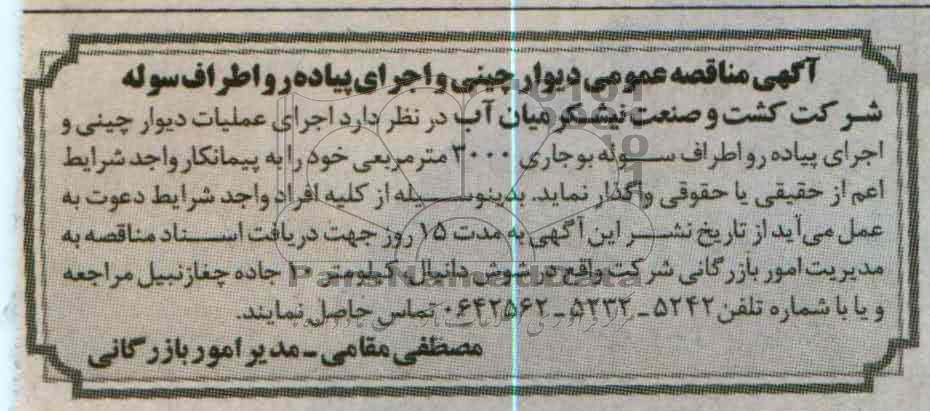 آگهی مناقصه عمومی دیوار چینی و اجرای پیاده رو اطراف سوله
شرکت کشت و صنعت نیشکر میان آب در نظر دارد اجرای عملیات دیوار چینی و
اجرای پیاده رو اطراف سوله بوجاری ۳۰۰۰ مترمربعی خود را به پیمانکار واجد شرایط
اعم از حقیقی یا حقوقی واگذار نماید. بدینوسیله از کلیه افراد واجد شرایط دعوت به
عمل می‌آید از تاریخ نشر این آگهی به مدت ۱۵ روز جهت دریافت اسناد مناقصه به
مدیریت امور بازرگانی شرکت واقع در شوش دانیال کیلومتر ۱۰ جاده چغازنبیل مراجعه
و یا با شماره تلفن ۵۲۴۲ ـ ۵۲۳۲ ـ ۰۶۴۲۵۶۲ تماس حاصل نمایند.
مصطفی مقامی ـ مدیر امور بازرگانی
ParsNamadData